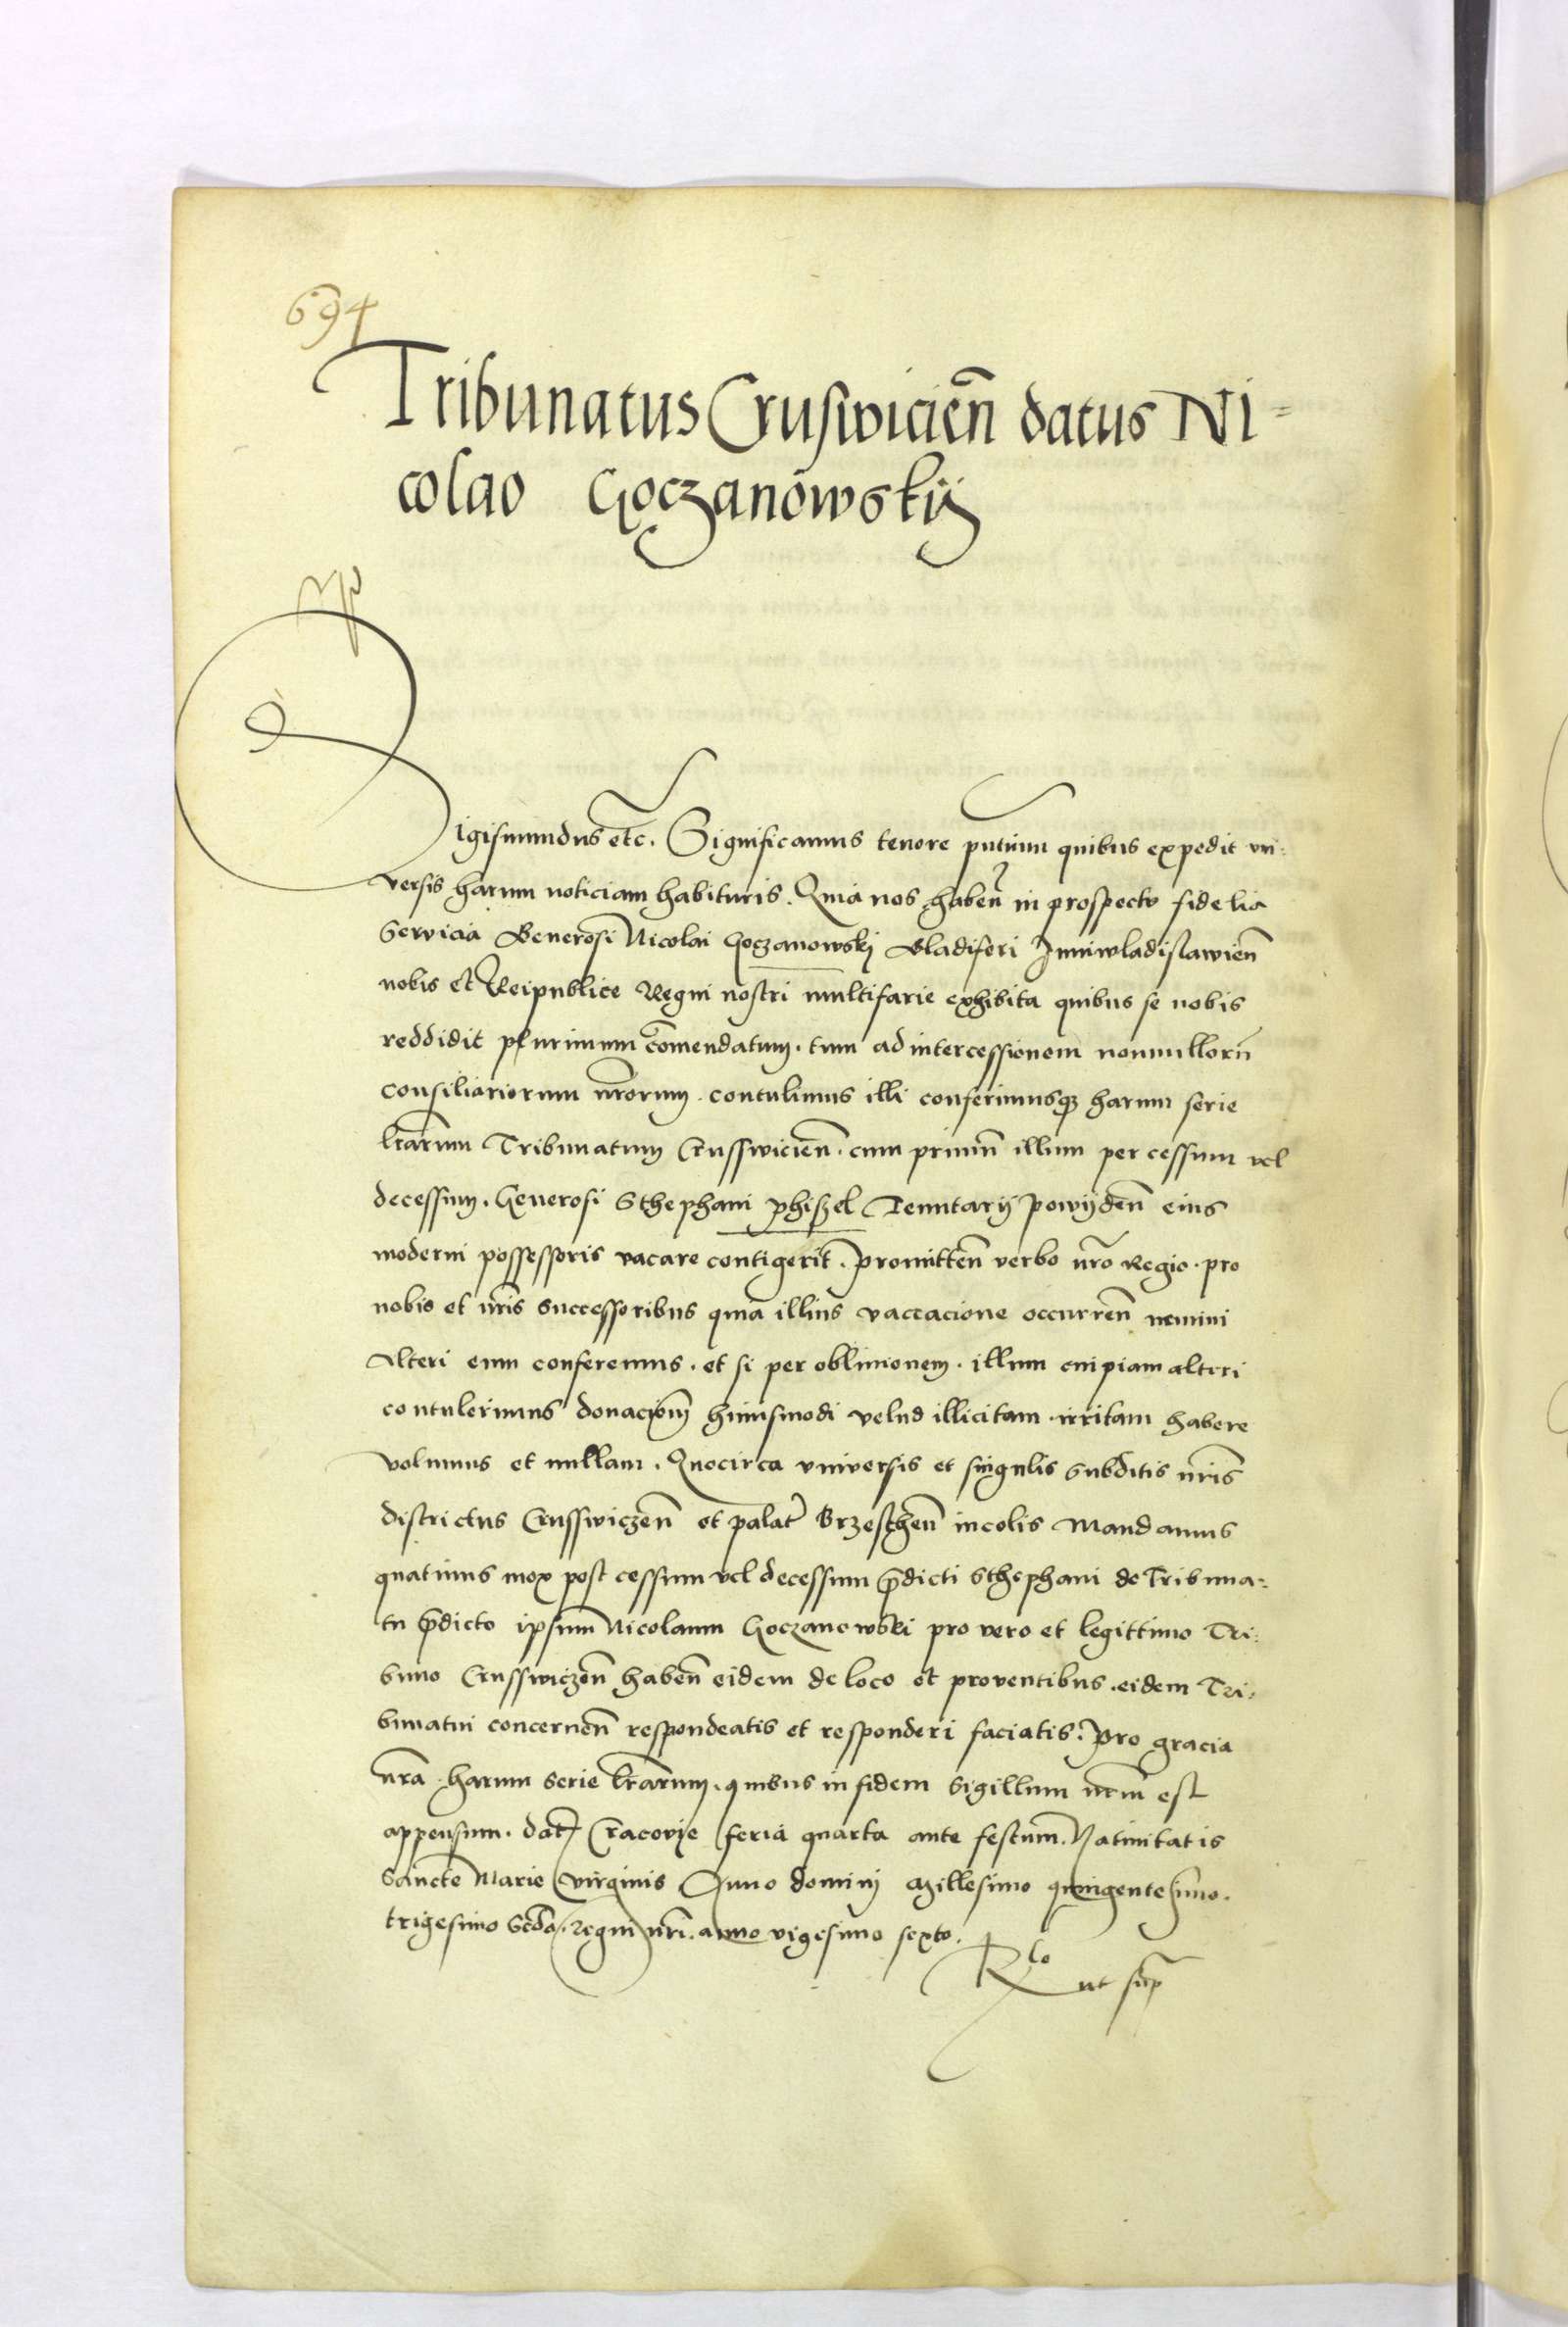 694
Tribunatus Cruswicień datus Ni=
colao Goczanówskÿ
Sigismundus etc. Significamus tenore pñtium quibus expedit vni:
versis harum noticiam habituris. Quia nos habeñ in prospecto fidelia
Servicia Generosi Nicolai Goczanowskj Gladiferi Juniwladislawień
nobis et Reipublice Regni nostri multifarie exhibita quibus se nobis
reddidit plurimum cōmendatum. tum ad intercessionem nonnullorū
consiliariorum nr̄orum. contulimus illi conferimusqz harum serie
lr̄arum Tribunatum Crusswicień. cum primū illum per cessum vel
decessum. Generosi Sthephani phiszel Tenutarÿ powÿdeñ eius
moderni possessoris vacare contigerit. promitteñ verbo nr̄o Regio. pro
nobis et nr̄is successoribus quia illius vaccacione occurreñ nemini
alteri eum conferemus. et si per obliuionem. illum cuipiam alteri
contulerimus donacionē huiusmodi velud illicitam irritam habere
volumus et nullam. Quocirca vniversis et singulis subditis nr̄is
districtus Crusswiczeñ et palat Brzescheñ incolis Mandamus
quatinus mox post cessum vel decessum p̄dicti Sthephani de Tribuna:
tu p̄dicto ipsum Nicolaum Goczanowski pro vero et legittimo Tri:
buno Crusswiczeñ habeñ eidem de loco et proventibus. eidem Tri:
bunatui concerneñ respondeatis et responderi faciatis. Pro gracia
nr̄a harum serie lr̄arum. quibus in fidem Sigillum nr̄m est
appensum. dat Cracovie feria quarta ante festum. Natiuitatis
Sancte Marie virginis Anno dominj Millesimo quingentesimo.
trigesimo Scd̄o. Regni nr̄i. anno vigesimo sexto.
Rlo ut sup